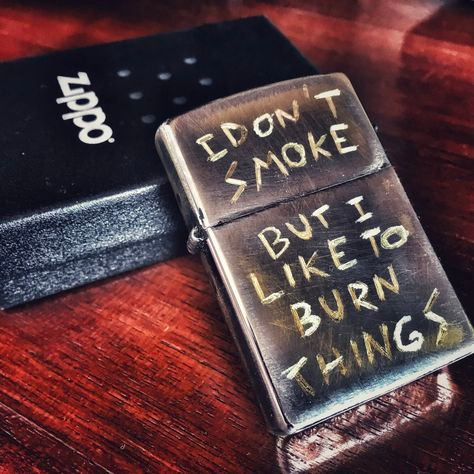 zippo
I DON'T
SMOKE
BUT I
LIKE TO
BURN
THINGS